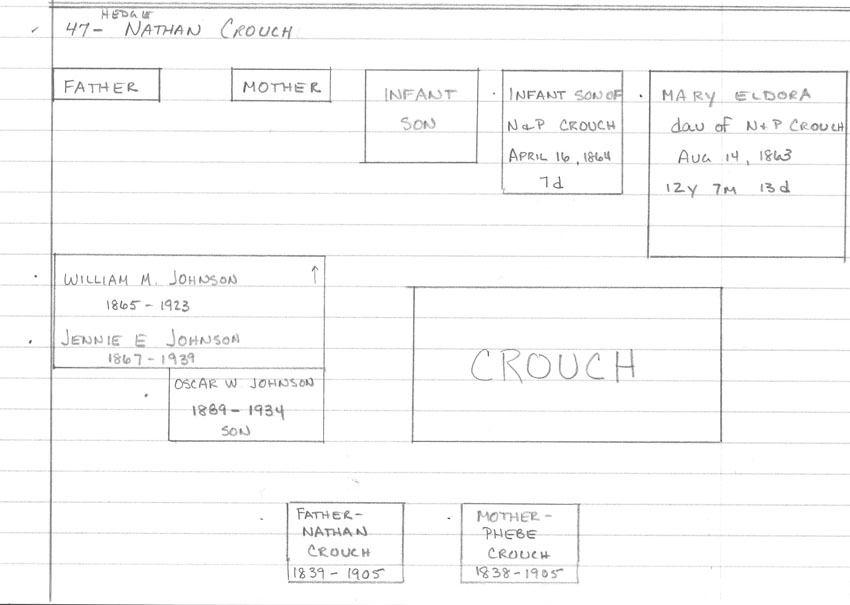 HEDGE
47- NATHAN CROUCH
FATHER
MOTHER
INFANT
SON
INFANT SON OF
N&P CROUCH
APRIL 16, 1864
7d
MARY ELDORA
dau of N+P CROUCH
AUG 14, 1863
12y 7M 13d
WILLIAM M. JOHNSON ↑
1865-1923
JENNIE E JOHNSON
1867-1939
OSCAR W JOHNSON
1889-1934
SON
CROUCH
FATHER-
NATHAN
CROUCH
1839-1905
MOTHER-
PHEBE
CROUCH
1838-1905